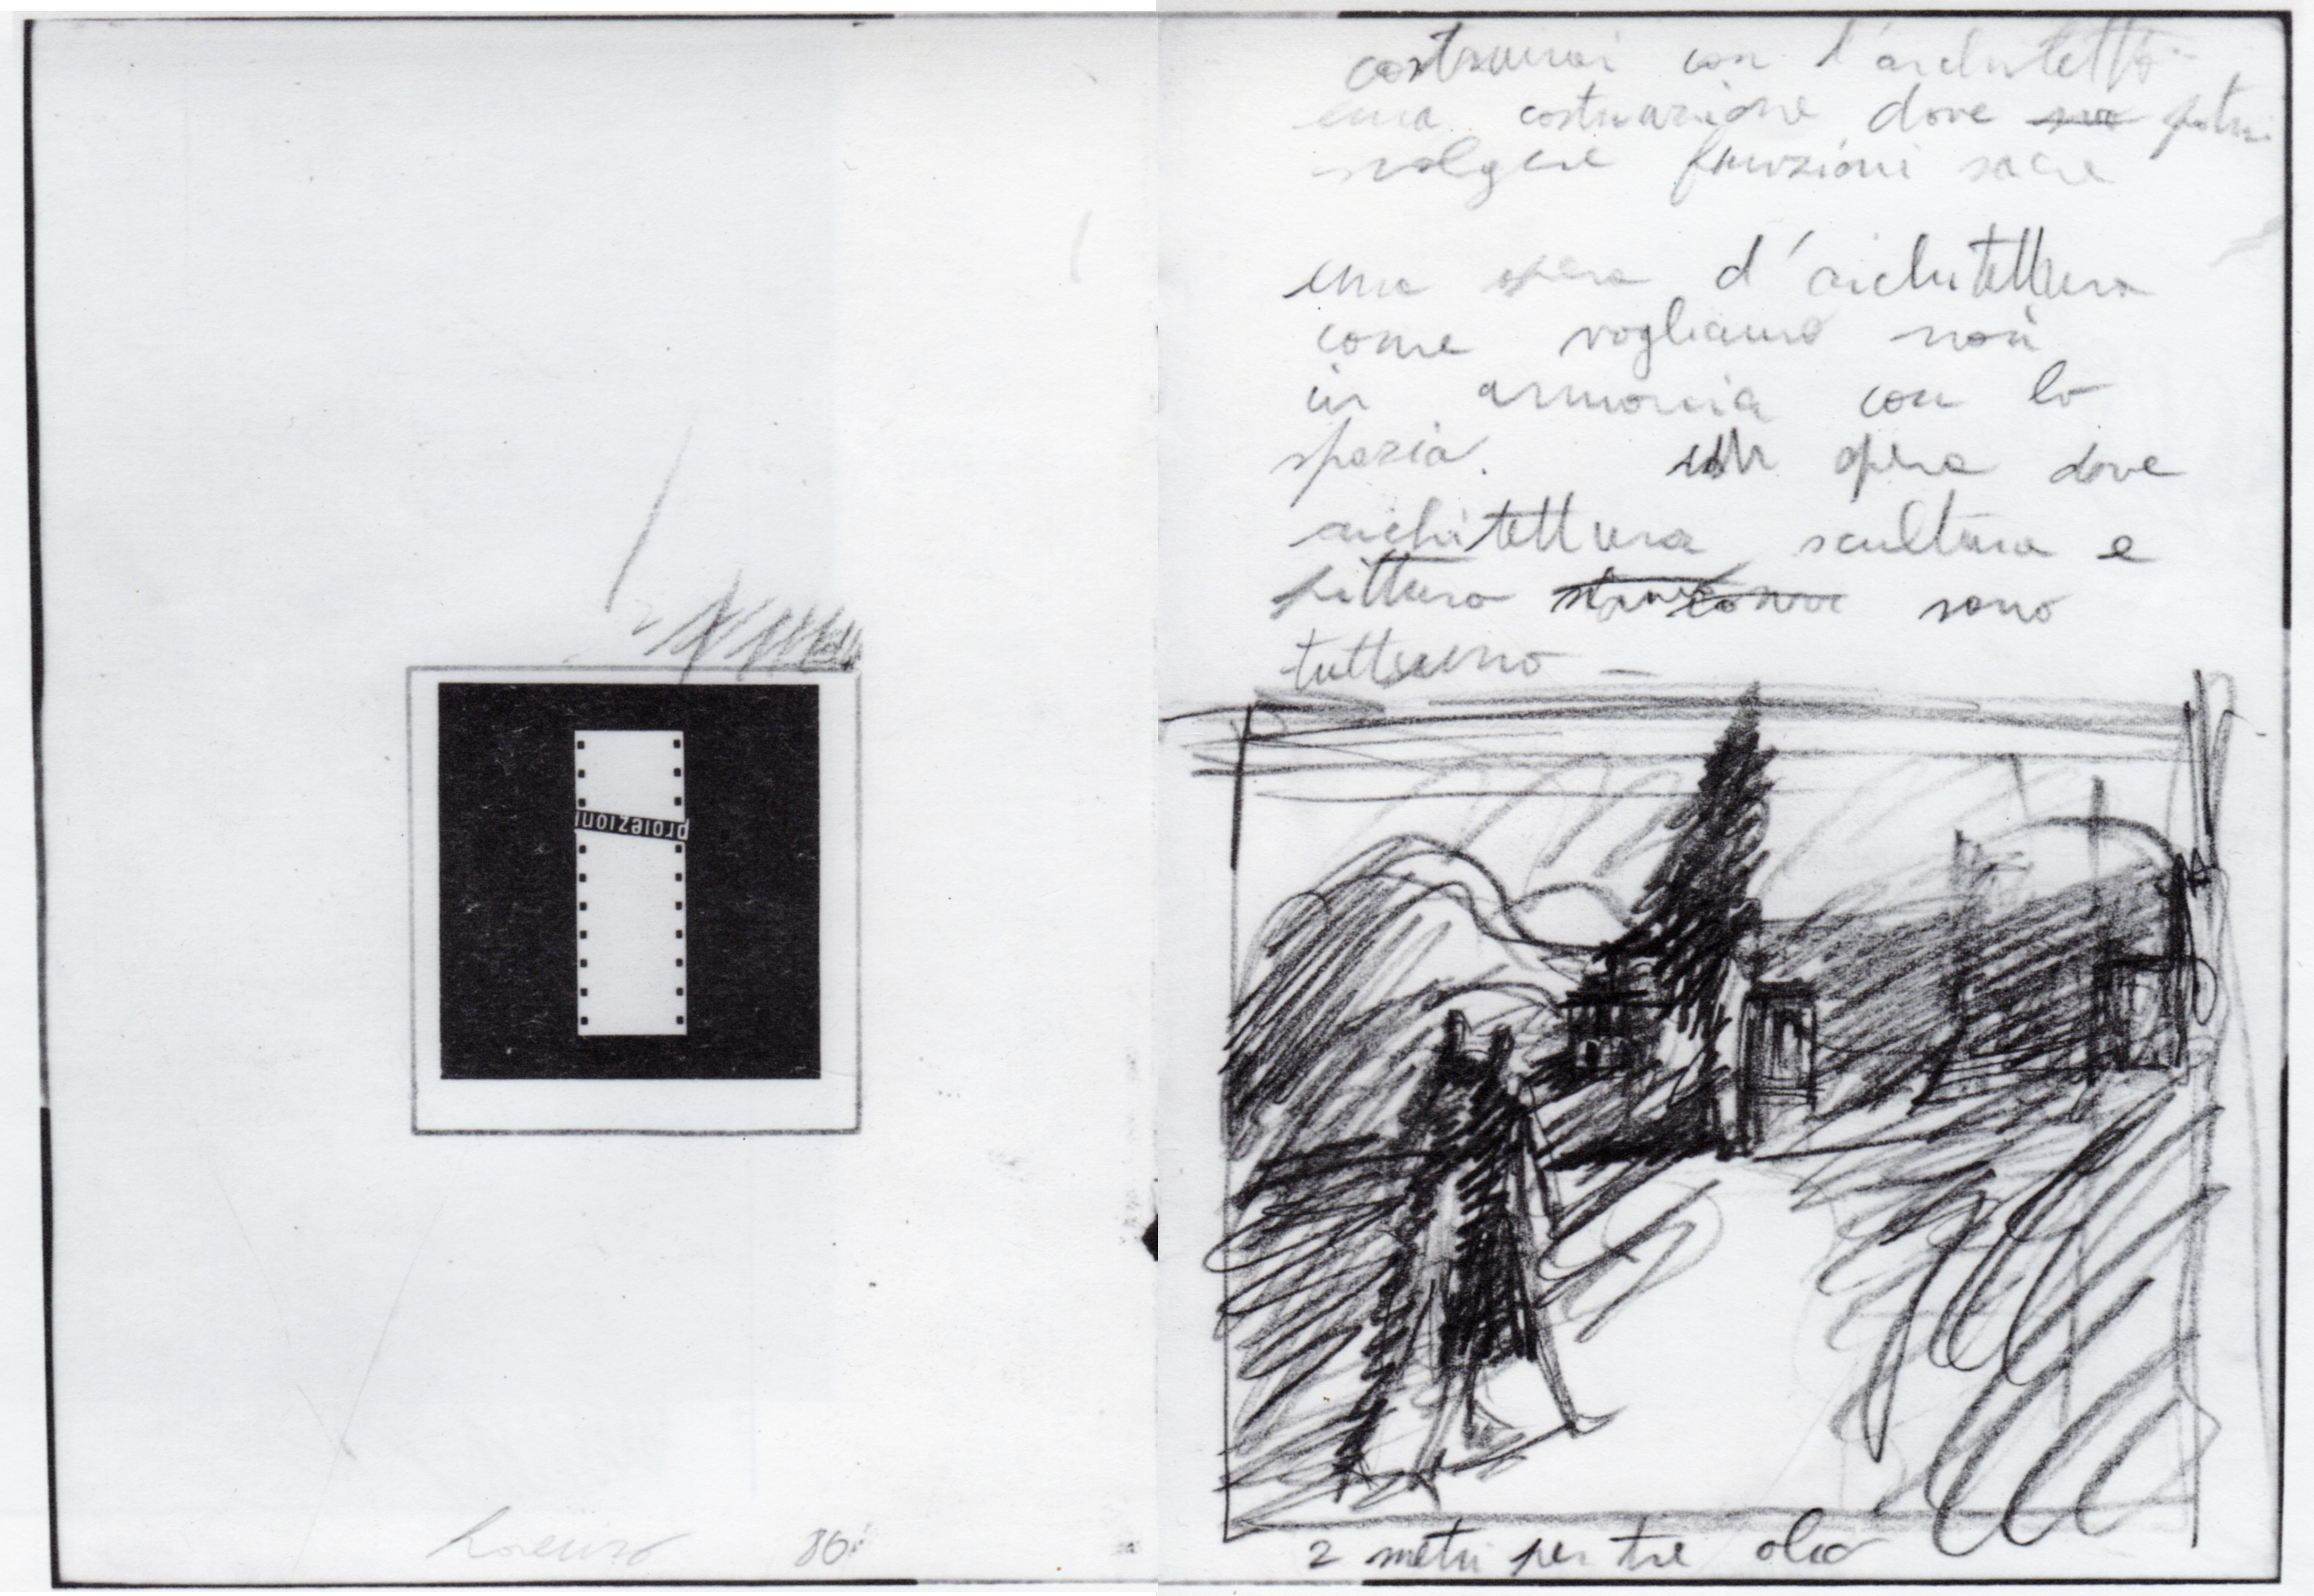 proiezioni
Lorenzo 86
costruirei con l'architetto
una costruzione dove potrei
svolgere funzioni sacre
una opera d'architettura
come vogliamo noi
in armonia con lo
spazio. opera dove
architettura scultura e
pittura sono
tuttuno –
2 metri per tre olio